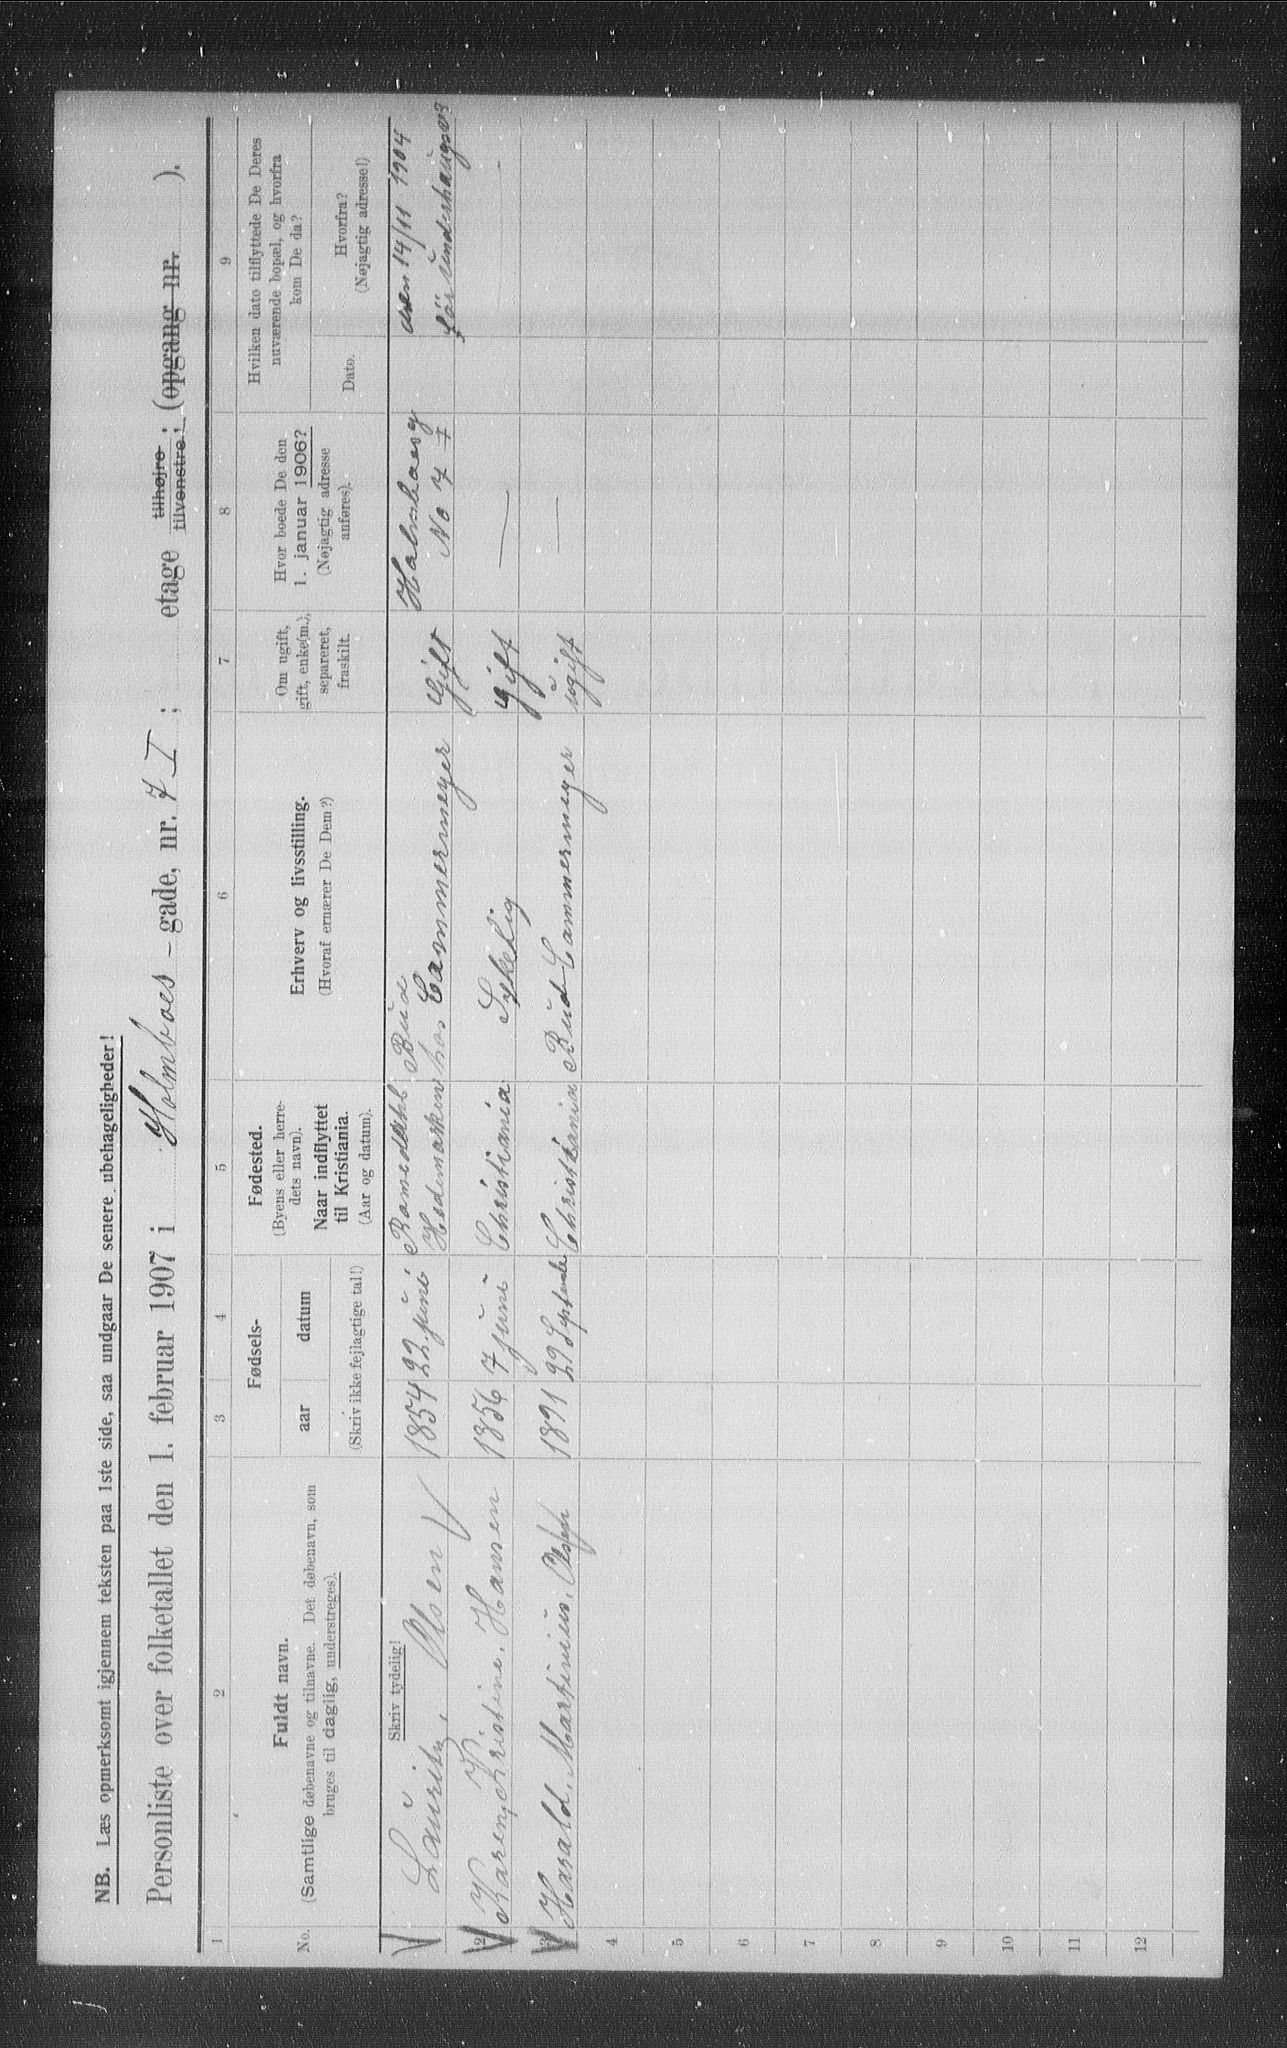 NB. Læs opmerksomt igjennem teksten paa 1ste side, saa undgaar De senere ubehageligheder!
Personliste over folketallet den 1. februar 1907 i Holmboes - gade, nr. 7 I ; etage tilhøjre tilvenstre; (opgang nr. ).
1 2 3 4 5 6 7 8 9
No.
Fuldt navn.
(Samtlige døbenavne og tilnavne. Det døbenavn, som
bruges til daglig, understreges).
Fødsels-
aar datum
(Skriv ikke fejlagtige tal!)
Fødested.
(Byens eller herre-
dets navn).
Naar indflyttet
til Kristiania.
(Aar og datum).
Erhverv og livsstilling.
(Hvoraf ernærer De Dem?)
Om ugift,
gift, enke(m.),
separeret,
fraskilt.
Hvor boede De den
1. januar 1906?
(Nøjagtig adresse
anføres).
Hvilken dato tilflyttede De Deres
nuværende bopæl, og hvorfra
kom De da?
Dato.
Hvorfra?
(Nøjagtig adresse!)
Skriv tydelig!
Lauritz. Olsen 1854 22 juni
Hedemarken
Bud
hos Cammermeyer
Gift
No 7 I
den 14/11 1904
2 Karen. Kristine. Hansen 1856 7 juni Christiania Sykelig Gift — —
3 Harald. Martinius. Olsen 1891 29 September Christiania Bud Cammermeyer ugift —
4
5
6
7
8
9
10
11
12